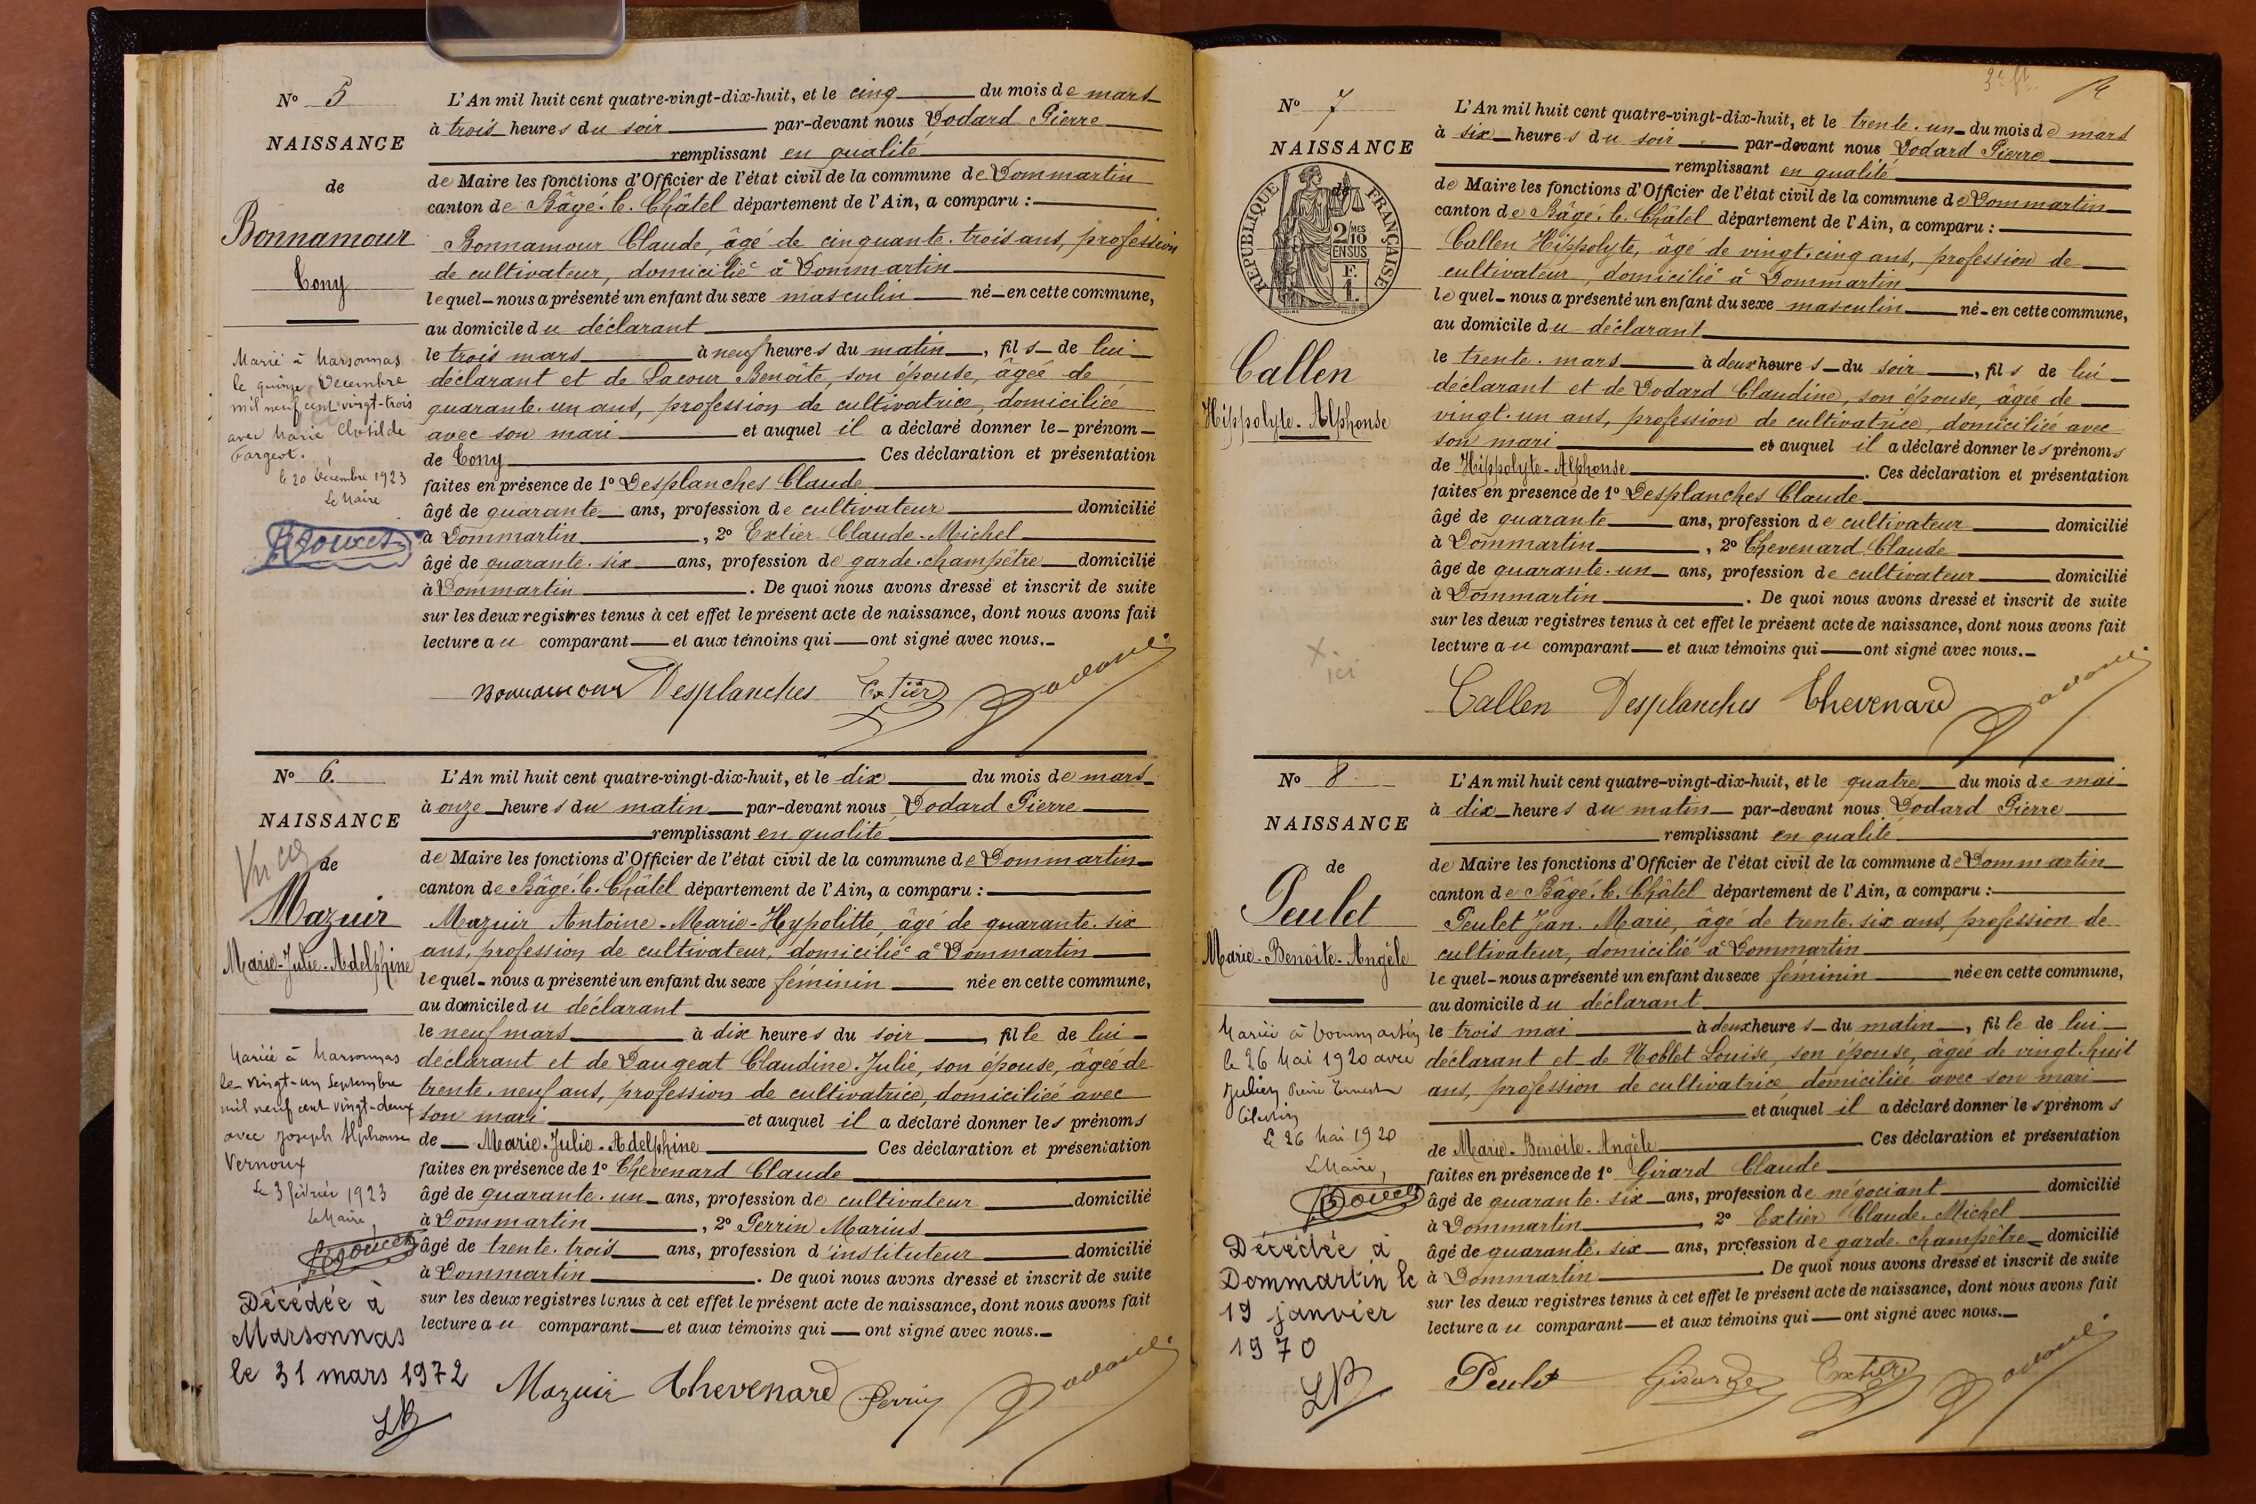 N° 5
NAISSANCE
de
Bonnamour
Tony
Marié à Marsonnas
le quinze Décembre
mil neuf cent vingt-trois
avec Marie Clotilde
Fargeot.
le 20 Décembre 1923
Le Maire
L'An mil huit cent quatre-vingt-dix-huit, et le cinq du mois de mars
à trois heures du soir par-devant nous Dodard Pierre
remplissant en qualité
de Maire les fonctions d'Officier de l'état civil de la commune de Dommartin
canton de Bâgé-le-Châtel département de l'Ain, a comparu :
Bonnamour Claude, âgé de cinquante-trois ans, profession
de cultivateur, domicilié à Dommartin
lequel nous a présenté un enfant du sexe masculin né en cette commune,
au domicile du déclarant
le trois mars à neuf heures du matin, fils de lui
déclarant et de Lacour Benoîte, son épouse, âgée de
quarante-un ans, profession de cultivatrice, domiciliée
avec son mari et auquel il a déclaré donner le prénom
de Tony Ces déclaration et présentation
faites en présence de 1° Desplanches Claude
âgé de quarante ans, profession de cultivateur domicilié
à Dommartin, 2° Extier Claude-Michel
âgé de quarante-six ans, profession de garde-champêtre domicilié
à Dommartin. De quoi nous avons dressé et inscrit de suite
sur les deux registres tenus à cet effet le présent acte de naissance, dont nous avons fait
lecture au comparant et aux témoins qui ont signé avec nous.
Bonnamour Desplanches Extier Dodard
N° 6.
NAISSANCE
de
Mazuir
Marie-Julie-Adelphine
Mariée à Marsonnas
le vingt-un Septembre
mil neuf cent vingt-deux
avec Joseph Alphonse
Vernoux
Le 3 février 1923
Le Maire,
Décédée à
Marsonnas
le 31 mars 1972
L'An mil huit cent quatre-vingt-dix-huit, et le dix du mois de mars
à onze heures du matin par-devant nous Dodard Pierre
remplissant en qualité
de Maire les fonctions d'Officier de l'état civil de la commune de Dommartin
canton de Bâgé-le-Châtel département de l'Ain, a comparu :
Mazuir Antoine-Marie-Hypolitte, âgé de quarante-six
ans, profession de cultivateur, domicilié à Dommartin
lequel nous a présenté un enfant du sexe féminin née en cette commune,
au domicile du déclarant
le neuf mars à dix heures du soir, fille de lui
déclarant et de Daugeat Claudine-Julie, son épouse, âgée de
trente-neuf ans, profession de cultivatrice, domiciliée avec
son mari et auquel il a déclaré donner les prénoms
de Marie-Julie-Adelphine Ces déclaration et présentation
faites en présence de 1° Chevenard Claude
âgé de quarante-un ans, profession de cultivateur domicilié
à Dommartin, 2° Perrin Marius
âgé de trente-trois ans, profession d'instituteur domicilié
à Dommartin. De quoi nous avons dressé et inscrit de suite
sur les deux registres tenus à cet effet le présent acte de naissance, dont nous avons fait
lecture au comparant et aux témoins qui ont signé avec nous.
Mazuir Chevenard Perrin Dodard
N° 7
NAISSANCE
de
RÉPUBLIQUE FRANÇAISE
2/10MES
EN SUS
F.
1.
Callen
Hippolyte-Alphonse
X.
ici
L'An mil huit cent quatre-vingt-dix-huit, et le trente-un du mois de mars
à six heures du soir par-devant nous Dodard Pierre
remplissant en qualité
de Maire les fonctions d'Officier de l'état civil de la commune de Dommartin
canton de Bâgé-le-Châtel département de l'Ain, a comparu :
Callen Hippolyte, âgé de vingt-cinq ans, profession de
cultivateur, domicilié à Dommartin
lequel nous a présenté un enfant du sexe masculin né en cette commune,
au domicile du déclarant
le trente mars à deux heures du soir, fils de lui
déclarant et de Dodard Claudine, son épouse, âgée de
vingt-un ans, profession de cultivatrice, domiciliée avec
son mari et auquel il a déclaré donner les prénoms
de Hippolyte-Alphonse. Ces déclaration et présentation
faites en présence de 1° Desplanches Claude
âgé de quarante ans, profession de cultivateur domicilié
à Dommartin, 2° Chevenard Claude
âgé de quarante-un ans, profession de cultivateur domicilié
à Dommartin. De quoi nous avons dressé et inscrit de suite
sur les deux registres tenus à cet effet le présent acte de naissance, dont nous avons fait
lecture au comparant et aux témoins qui ont signé avec nous.
Callen Desplanches Chevenard Dodard
N° 8
NAISSANCE
de
Peulet
Marie-Benoîte-Angèle
Mariée à Dommartin
le 26 Mai 1920 avec
Julien Pierre Ernest
Célestin
Le 26 Mai 1920
Le Maire,
Décédée à
Dommartin le
19 janvier
1970
L'An mil huit cent quatre-vingt-dix-huit, et le quatre du mois de mai
à dix heures du matin par-devant nous Dodard Pierre
remplissant en qualité
de Maire les fonctions d'Officier de l'état civil de la commune de Dommartin
canton de Bâgé-le-Châtel département de l'Ain, a comparu :
Peulet Jean-Marie, âgé de trente-six ans, profession de
cultivateur, domicilié à Dommartin
lequel nous a présenté un enfant du sexe féminin née en cette commune,
au domicile du déclarant
le trois mai à deux heures du matin, fille de lui
déclarant et de Noblet Louise, son épouse, âgée de vingt-huit
ans, profession de cultivatrice domiciliée avec son mari
et auquel il a déclaré donner les prénoms
de Marie-Benoîte-Angèle Ces déclaration et présentation
faites en présence de 1° Girard Claude
âgé de quarante-six ans, profession de négociant domicilié
à Dommartin, 2° Extier Claude-Michel
âgé de quarante-six ans, profession de garde-champêtre domicilié
à Dommartin. De quoi nous avons dressé et inscrit de suite
sur les deux registres tenus à cet effet le présent acte de naissance, dont nous avons fait
lecture au comparant et aux témoins qui ont signé avec nous.
Peulet Girard Extier Dodard